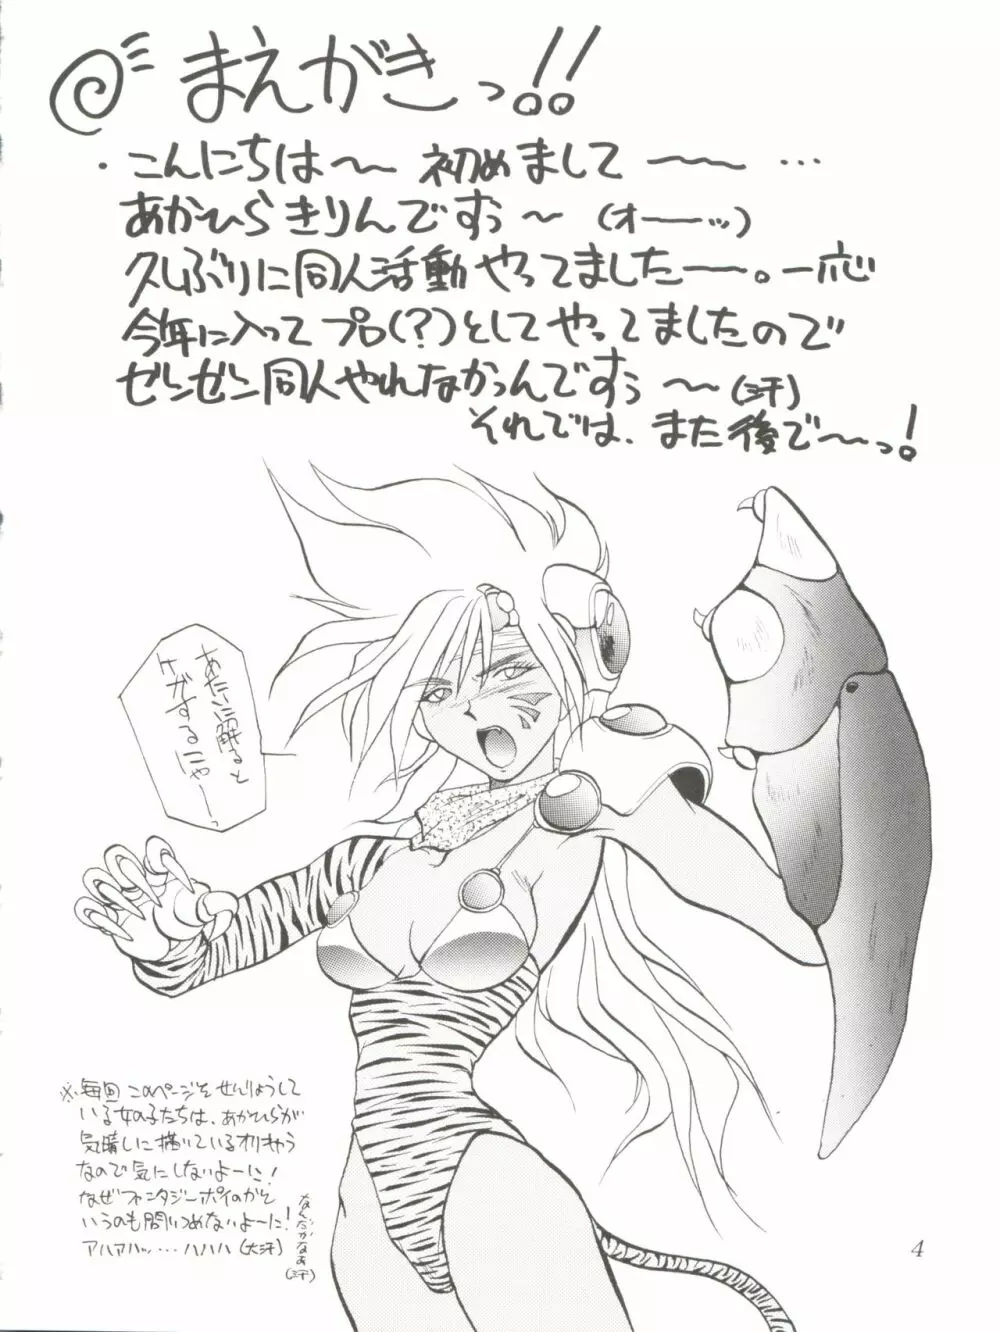 まえがきっ!!
・こんにちは〜 初めまして 〜〜 …
あかひらきりんですぅ〜 (オーーッ)
久しぶりに同人活動やってましたー。一応
今年に入ってプロ(?)としてやってましたので
ゼンゼン同人やれなかったんですぅ〜(汗)
それでは、また後で〜っ!
あたいに触ると
ケガするにゃーっ
※毎回このページをせんりょうして
いる女の子たちは、あかひらが
気晴しに描いているオリキャラ
なので気にしないよーに!
なぜファンタジーポイのかと
いうのも問いつめないよーに!
アハアハッ・・・ハハハ(大汗)
なんだかなぁ
(汗)
4